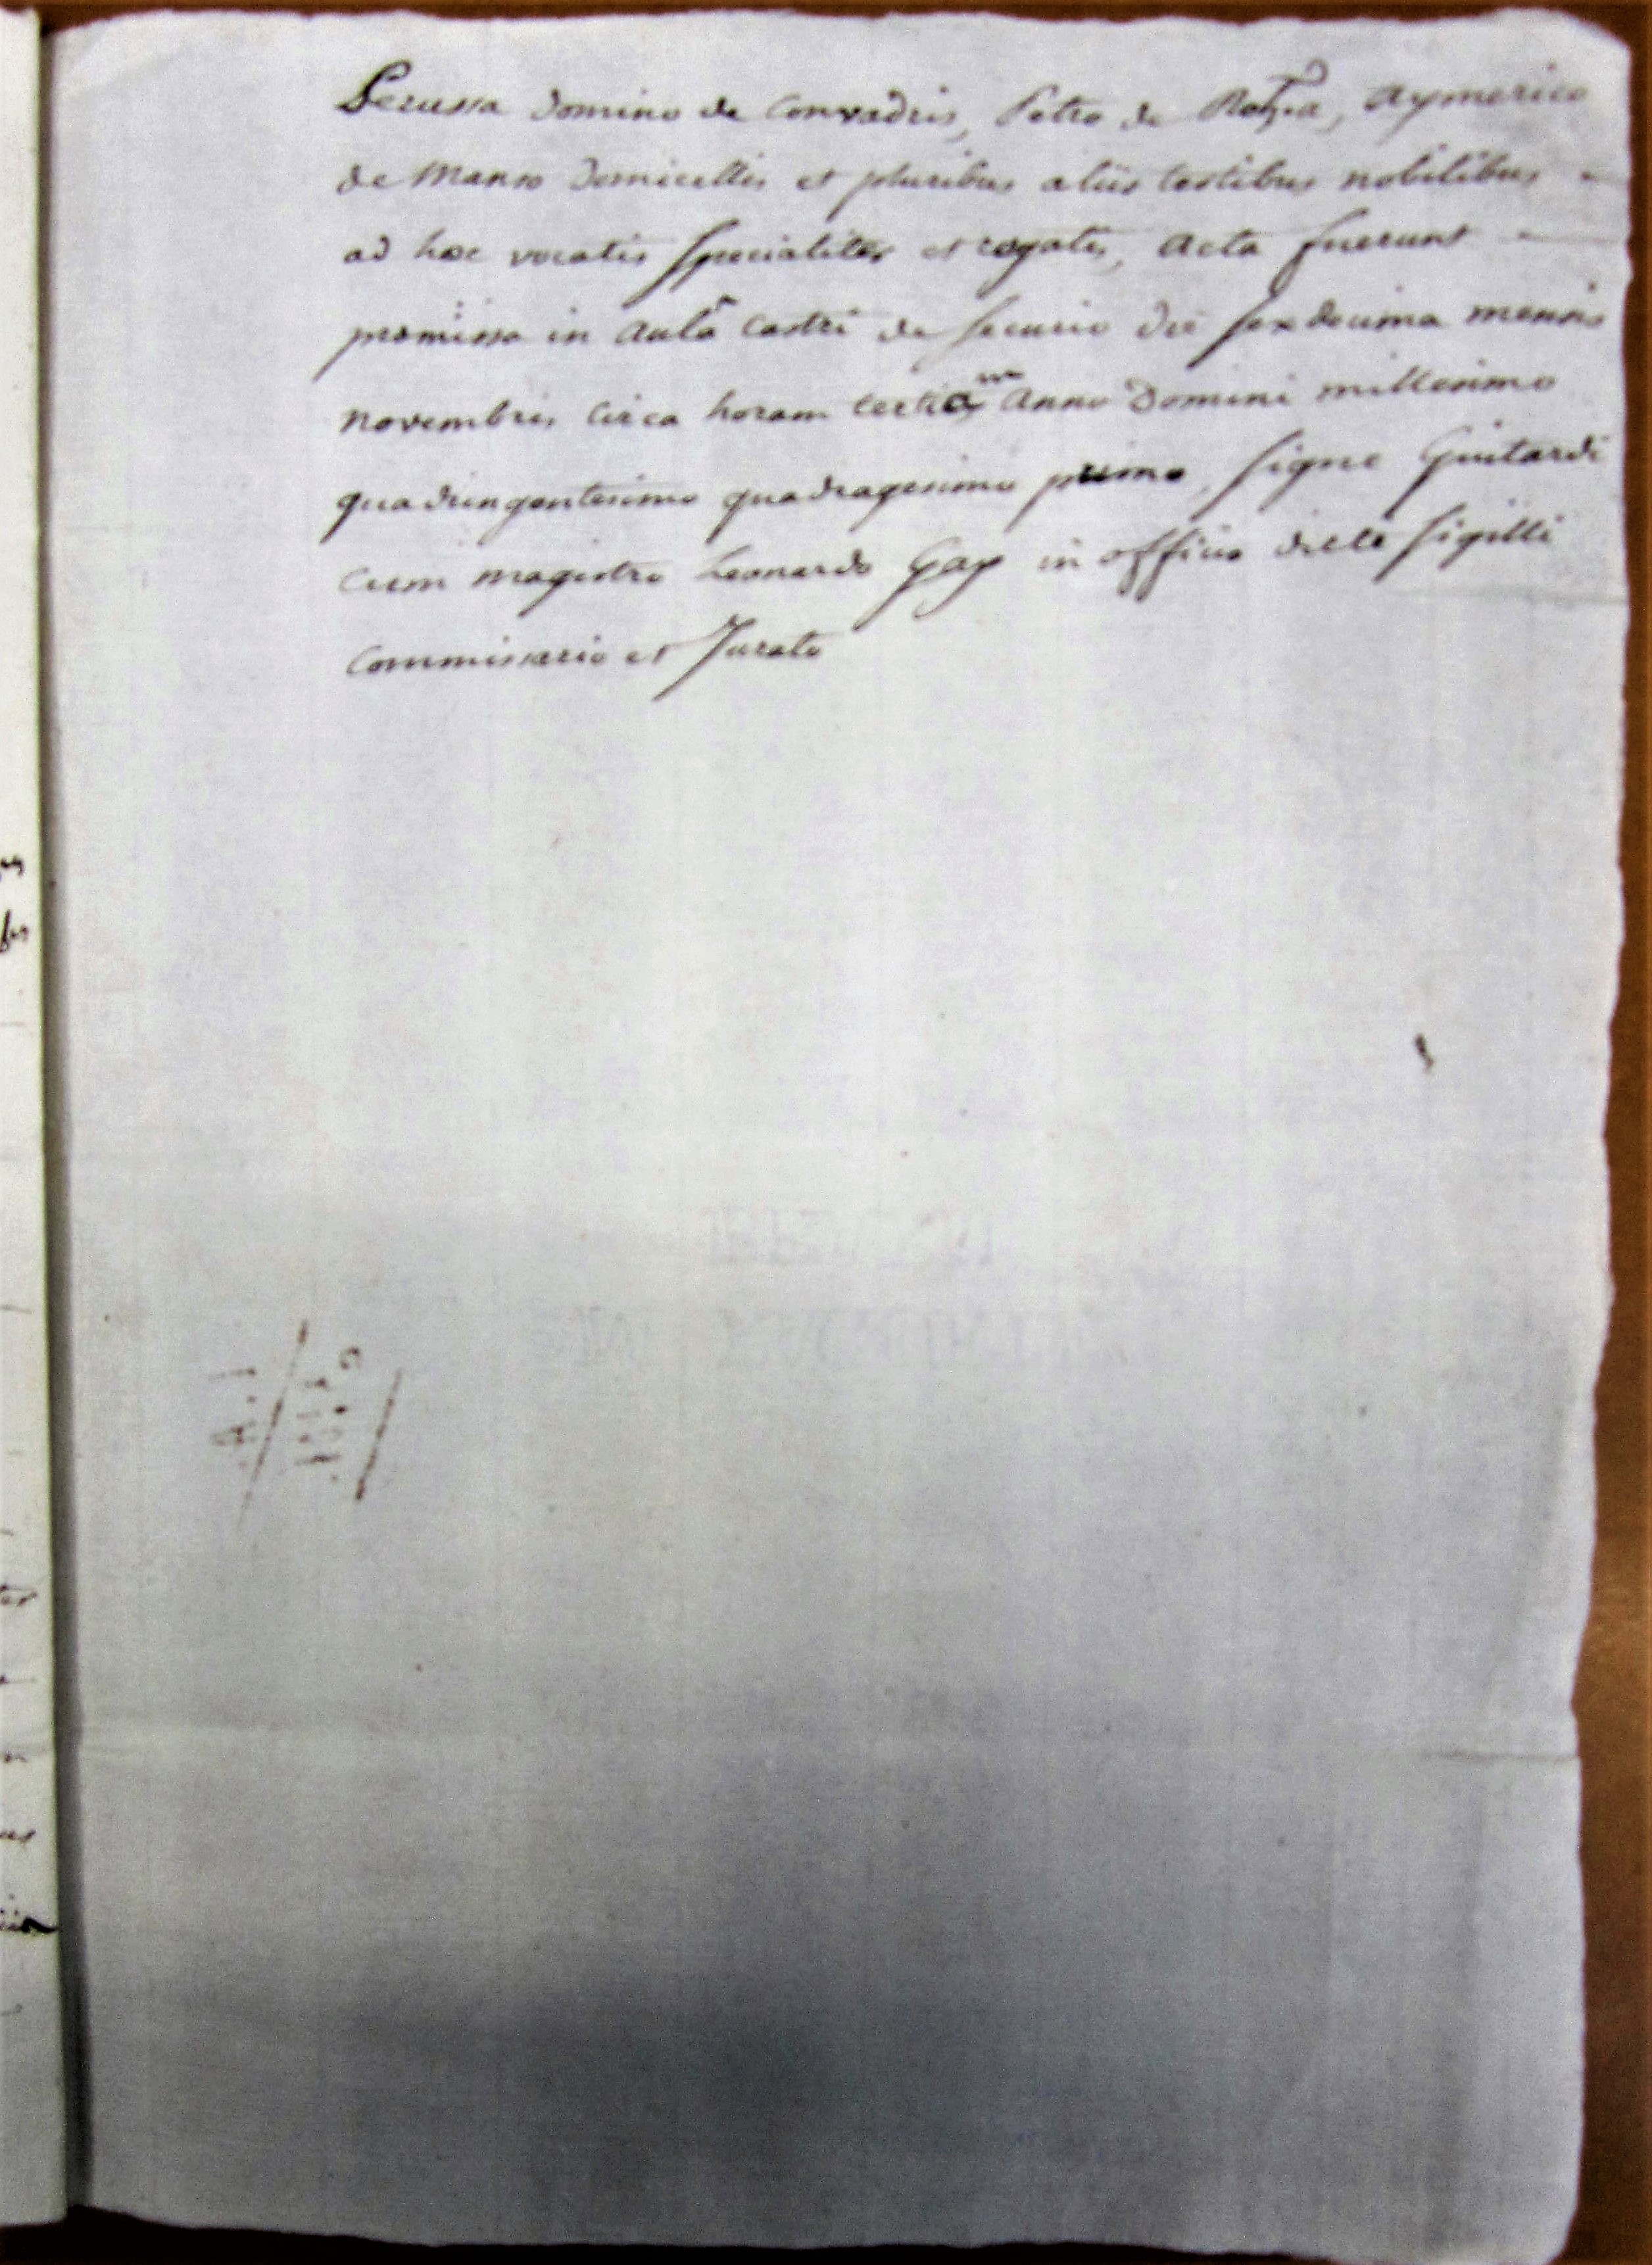 Perussa domino de Convadris, Petro de, Aymerico
de Manso domicellis et pluribus aliis testibus nobilibus
ad hoc vocatis specialiter et rogatis, acta fuerunt
præmissa in aulâ castri de securio die sexdecima mensis
novembris circa horam tertiam anno Domini millesimo
quadringentesimo quadragesimo primo, signé Guitardi
cum magistro Leonardo Gay in officio dicti sigilli
commissario et Jurato